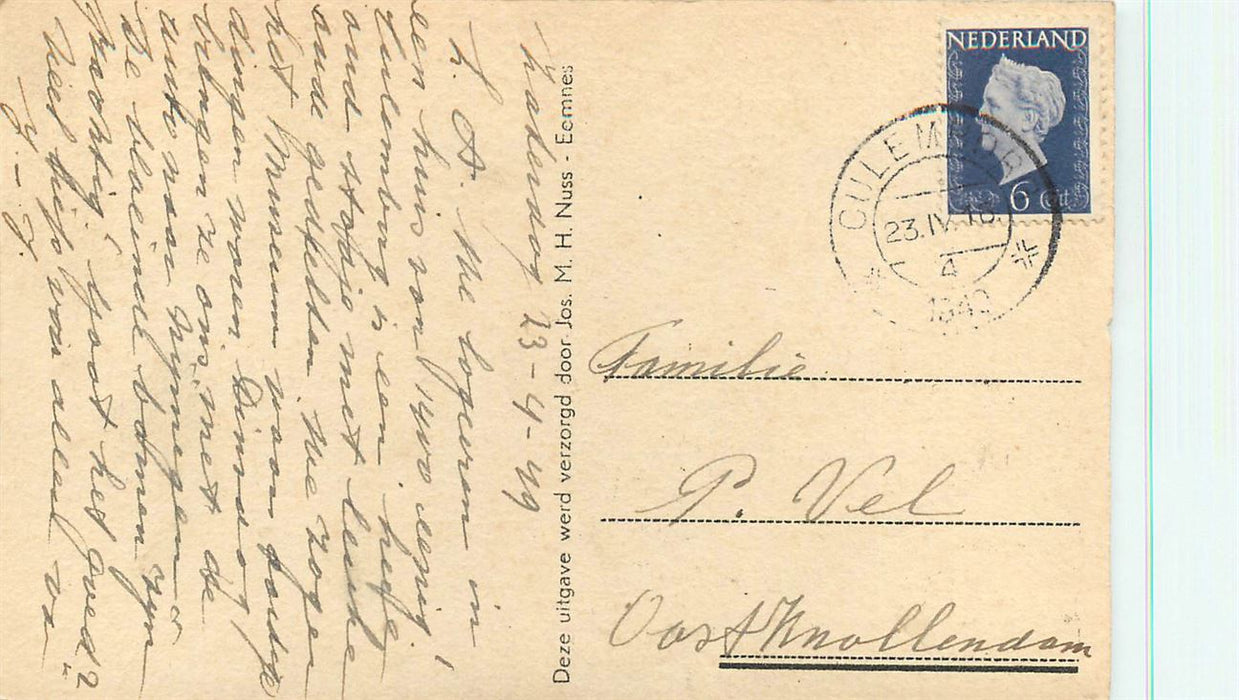 Zaterdag 23-4-49
L. A. We logeren in
een huis van 1400 eenig!
Culemburg is een heele
oud stadje met leuke
oude gedeelten. We zagen
het Museum voor
dingen waren. Dinsdag
brengen ze ons met de
auto naar Nijmegen.
De bloeiende boomen zijn
prachtig. Gaat het goed?
Veel liefs van allen van
Deze uitgave werd verzorgd door Jos. M. H. Nuss - Eemnes
NEDERLAND
6 Cnt
CULEMBORG
23.IV.18
4
1949
Familie
P. Vel
Oost Knollendam